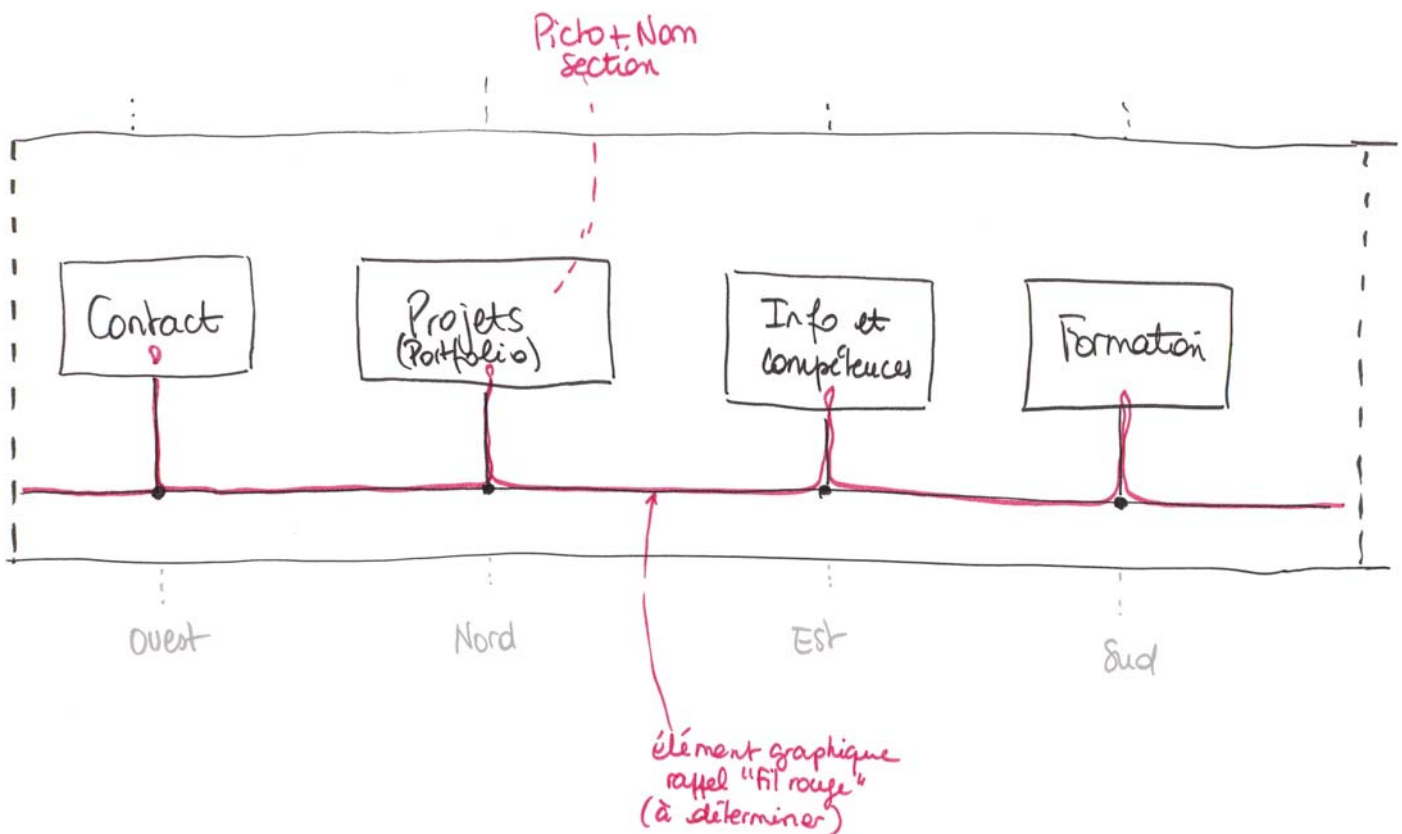 Picto + Nom
section
Contact
Projets
(Portfolio)
Info et
compétences
Formation
Ouest
Nord
Est
Sud
élément graphique
rappel "fil rouge"
(à déterminer)